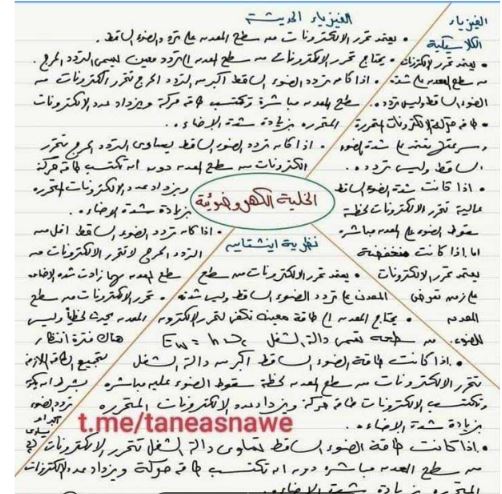 الفيزياء الكلاسيكية
الفيزياء الحديثة
• يعتمد تحرر الالكترونات من سطح المعدن على تردد الضوء الساقط.
• يحتاج تحرر الالكترونات من سطح المعدن الى تردد معين يسمى التردد الحرج.
• اذا كان تردد الضوء الساقط أكبر من التردد الحرج تتحرر الكترونات من
سطح المعدن مباشرة وتكتسب طاقة حركة ويزداد عدد الالكترونات
المتحرره بزيادة شدة الإضاءه.
• اذا كان تردد الضوء الساقط يساوي التردد الحرج تتحرر
الكترونات من سطح المعدن دون ان تكتسب طاقة حركة
ويزداد عدد الالكترونات المتحرره
بزيادة شدة الإضاءه.
• اذا كان تردد الضوء الساقط اقل من
التردد الحرج لا تتحرر الالكترونات من
سطح المعدن مهما زادت شدة الإضاءه
• يعتمد تحرر الالكترونات
من سطح المعدن على شدة
الضوء الساقط وليس تردده.
• طاقة حركة الالكترونات المتحررة
وسرعتها يعتمد على شدة الضوء
الساقط وليس تردده.
• اذا كانت شدة الضوء الساقط
عالية تتحرر الالكترونات لحظة
سقوط الضوء على المعدن مباشره
اما اذا كانت منخفضة
يعتمد تحرر الالكترونات
على زمن تعرض
المعدن
للضوء.
الخلية الكهروضوئية
نظرية اينشتاين
• يعتمد تحرر الالكترونات من سطح
المعدن على تردد الضوء الساقط وليس شدته
• يحتاج المعدن الى طاقة معينه تكفي لتحرر الالكترون
من سطحه تسمى دالة الشغل Ew = hυc
• اذا كانت طاقة الضوء الساقط أكبر من دالة الشغل
تتحرر الالكترونات من سطح المعدن لحظة سقوط الضوء عليه مباشره
وتكتسب الالكترونات طاقة حركة ويزداد عدد الالكترونات المتحرره
بزيادة شدة الإضاءه.
• اذا كانت طاقة الضوء الساقط تساوي دالة الشغل تتحرر الالكترونات
من سطح المعدن مباشره دون ان تكتسب طاقة حركة ويزداد عدد الالكترونات
المتحرره بزيادة شدة الإضاءه.
• تحرر الالكترونات من سطح
المعدن يحدث لحظياً وليس
هناك فترة انتظار
لتجميع الطاقة اللازمه
t.me/taneasnawe